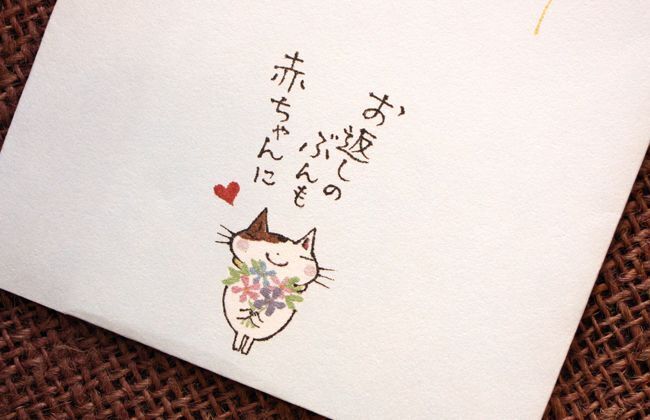 お返しの
ぶんも
赤ちゃんに